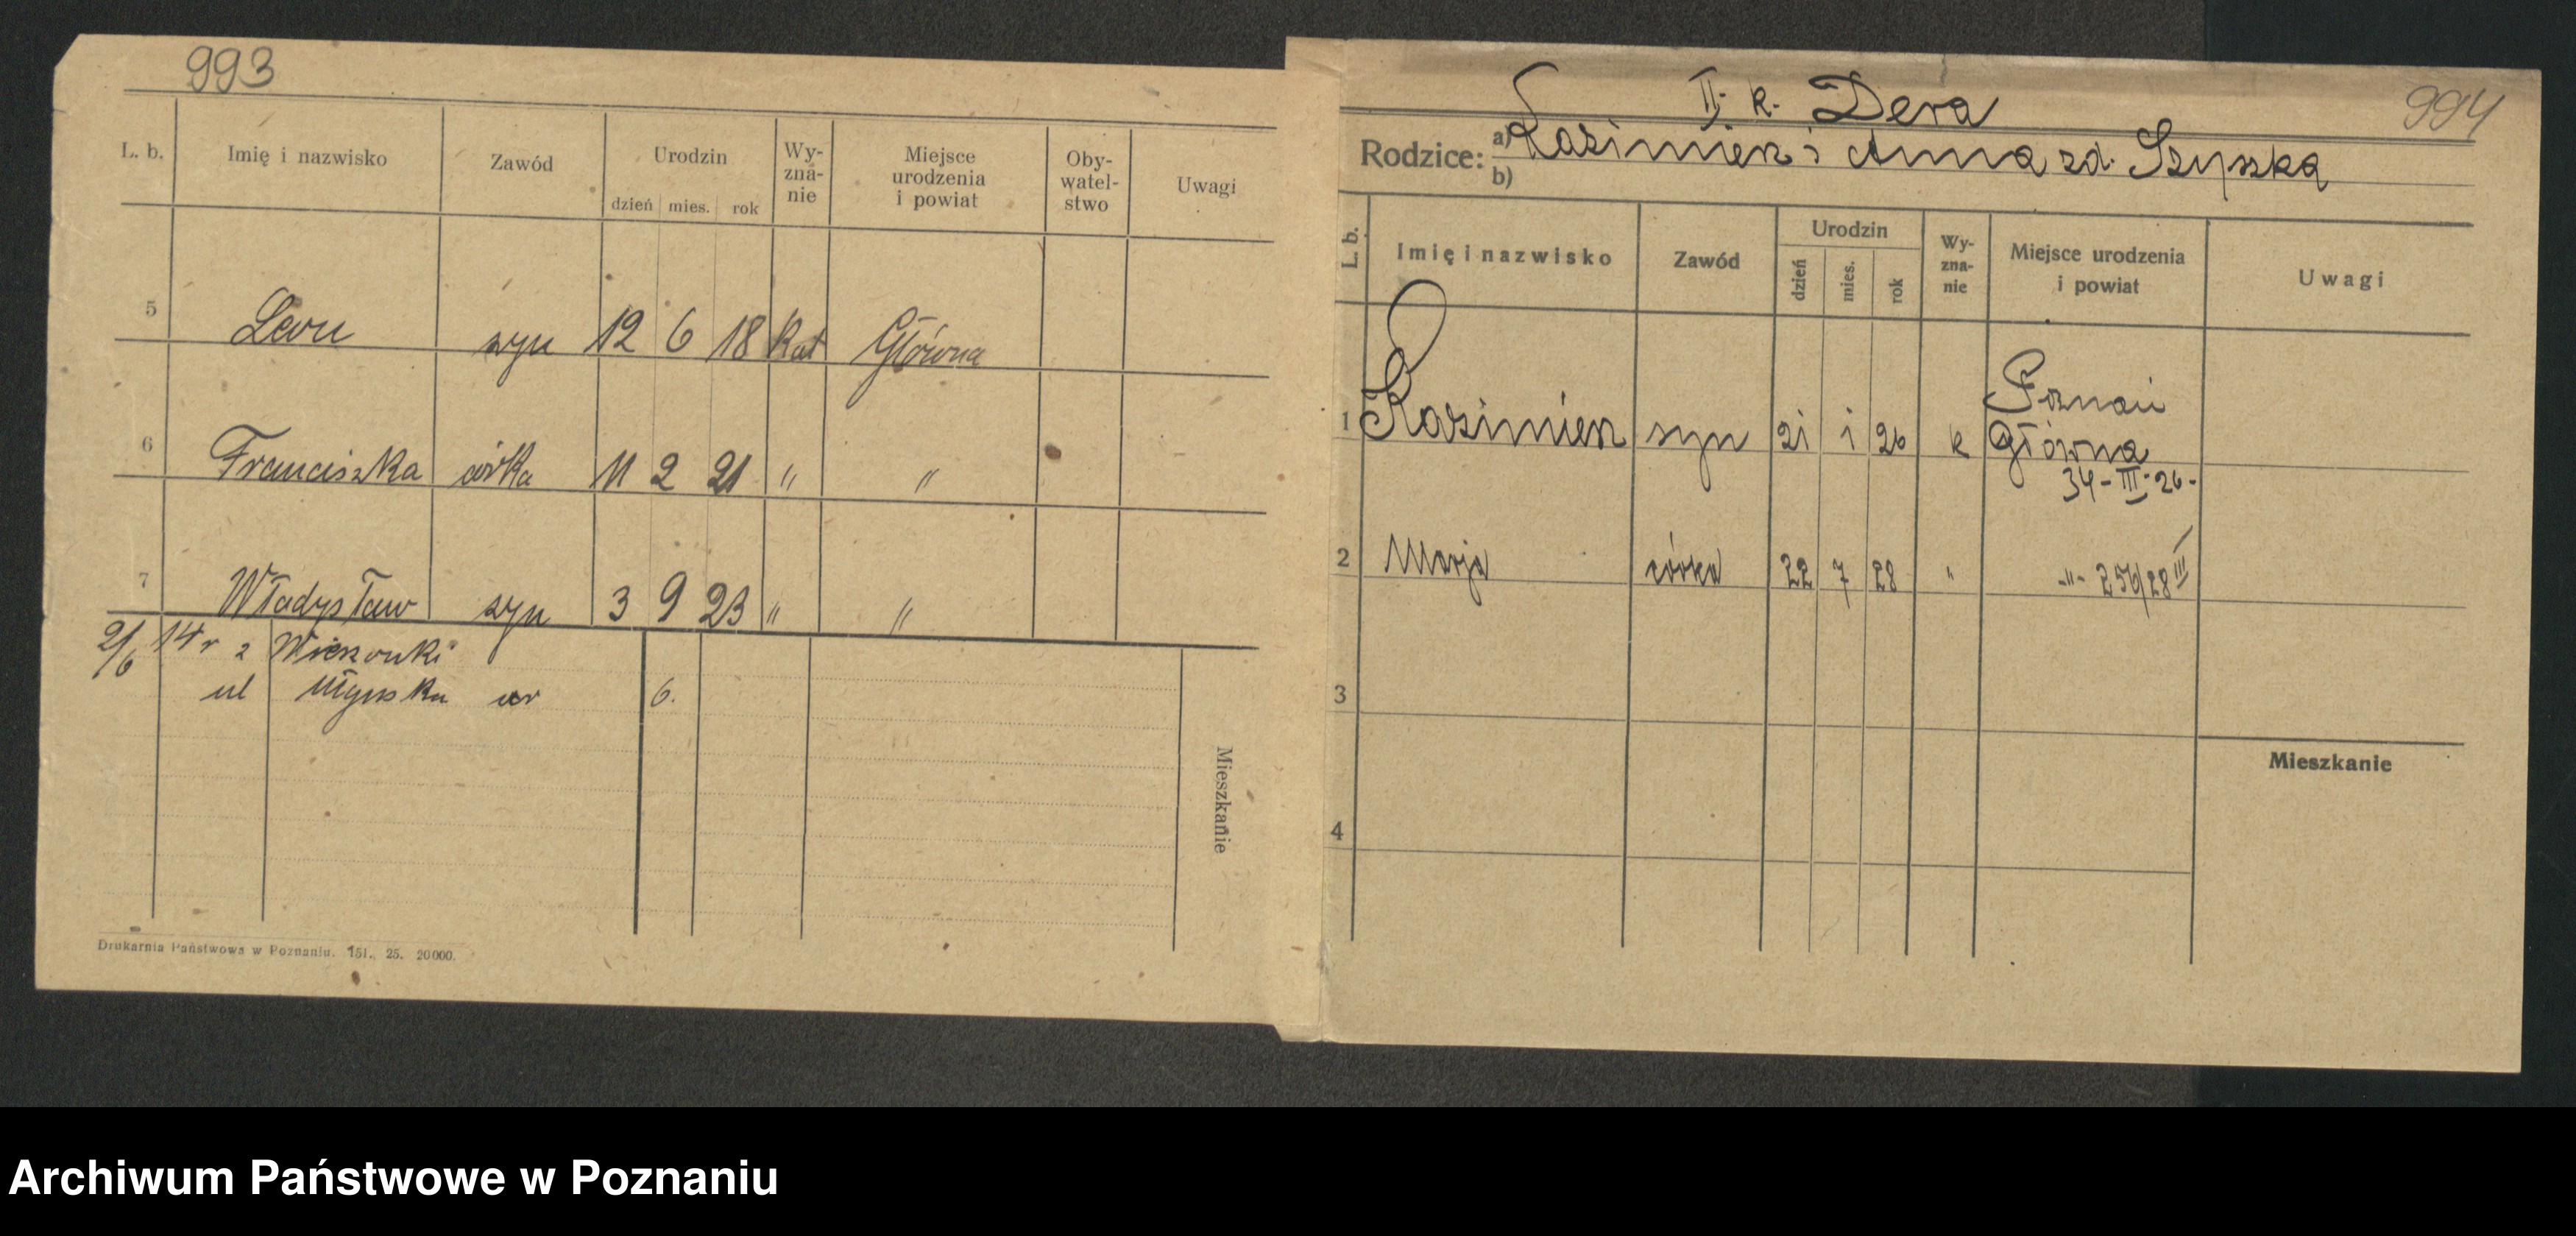 993
L. b. Imię i nazwisko Zawód Urodzin Wy-zna-nie Miejsce urodzenia i powiat Oby-watel-stwo Uwagi
dzień mies. rok
5 Leon syn 12 6 18 Kat Główna
6 Franciszka córka 11 2 21 " "
7 Władysław syn 3 9 23 " "
2/6 14 r z
ul 6.
Mieszkanie
Drukarnia Państwowa w Poznaniu. 151. 25. 20000.
994
II. k. Dera
Rodzice: a) Kazimierz i Anna zd. Szyszka
b)
L. b. Imię i nazwisko Zawód Urodzin Wy-zna-nie Miejsce urodzenia i powiat Uwagi
dzień mies. rok
1 Kazimierz syn 21 1 26 k Poznań
Główna
34-III-26-
2 Marja córka 22 7 28 " -"- 256/28 III
3
Mieszkanie
4
Archiwum Państwowe w Poznaniu